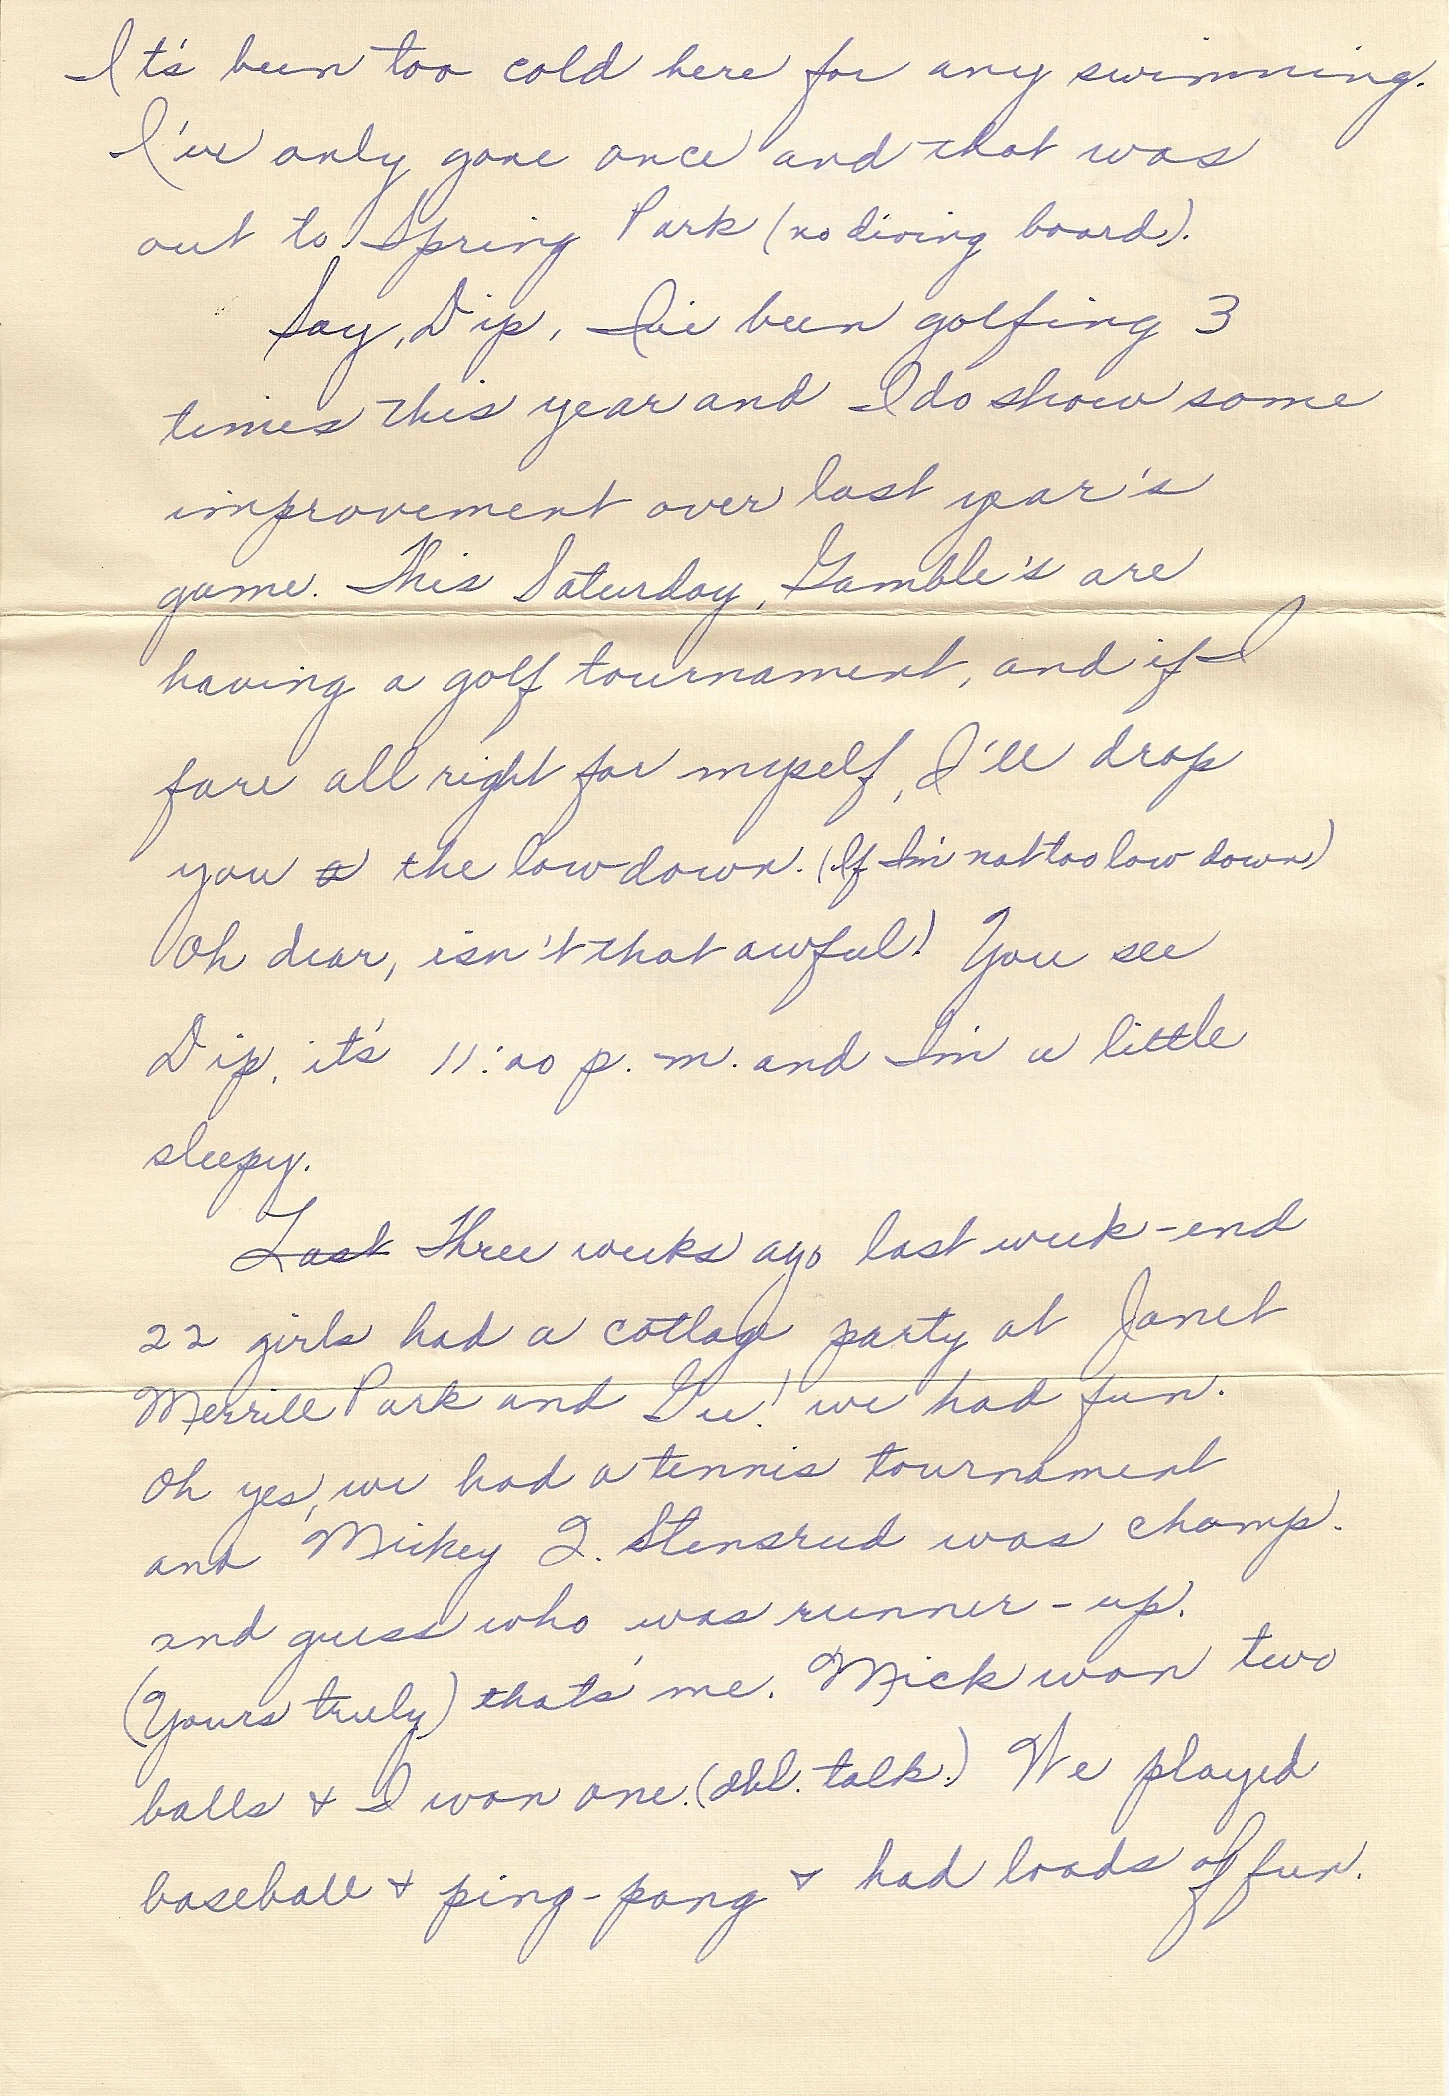 It's been too cold here for any swimming.
I've only gone once and that was
out to Spring Park (no diving board).
Say, Dip, I've been golfing 3
times this year and I do show some
improvement over last year's
game. This Saturday, Gamble's are
having a golf tournament, and if I
fare all right for myself, I'll drop
you a the lowdown. (If I'm not too low down)
Oh dear, isn't that awful! You see
Dip, it's 11:00 p.m. and I'm a little
sleepy.
Last Three weeks ago last week-end
22 girls had a cottage party at Janet
Merrill Park and Gee! we had fun.
Oh yes, we had a tennis tournament
and Mickey I. Stensrud was champ.
and guess who was runner-up.
(Yours truly) that's me. Mick won two
balls & I won one. (dbl. talk.) We played
baseball & ping-pong & had loads of fun.